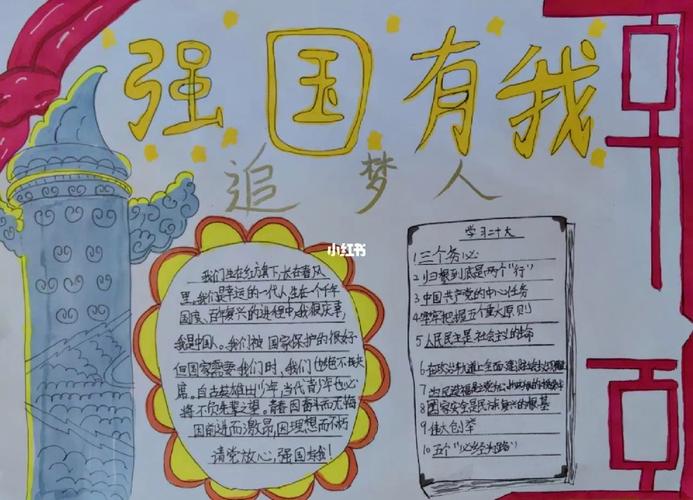 强国有我
追梦人
小红书
我们生在红旗下,长在春风
里。我们是幸运的一代人,生在一个千年
国度、百年复兴的进程中,我很庆幸,
我是中国人。我们被国家保护的很好
但国家需要我们时,我们也绝不缺
席。自古英雄出少年,当代青少年也必
将不负先辈之望。青春因奋斗而无悔
因前进而激昂,因理想而不朽
请党放心,强国有我!
学习二十大
1.三个务必
2.归根到底是两个"行"
3.中国共产党的中心任务
4.牢牢把握五个重大原则
5.人民民主是社会主义的生命
6.在法治轨道上全面建设社会主义现代化国家
7
8国家安全是民族复兴的根基
9.伟大创举
10.五个"必经之路"